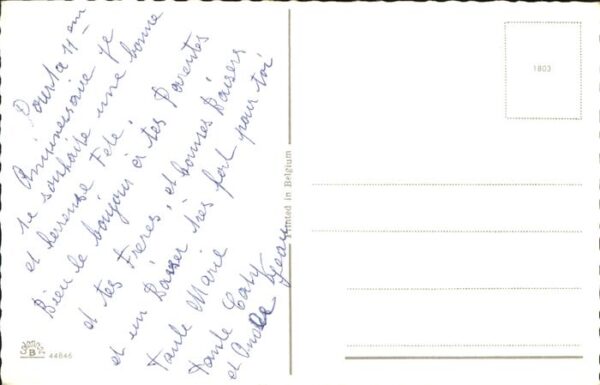 Pour ta 11 em
Anniversaire je
te souhaite une bonne
et herreuse Fête,
Bien le bonjour a tes Parentes
et tes Frères, et bonnes Baisers
et un Baiser très fort pour toi
Tante Marie
Tante Caty
et Jean
Printed in Belgium
1803
B
44646